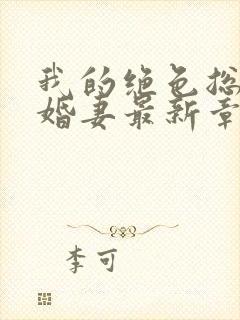 我的绝色总
婚妻最新章
李可